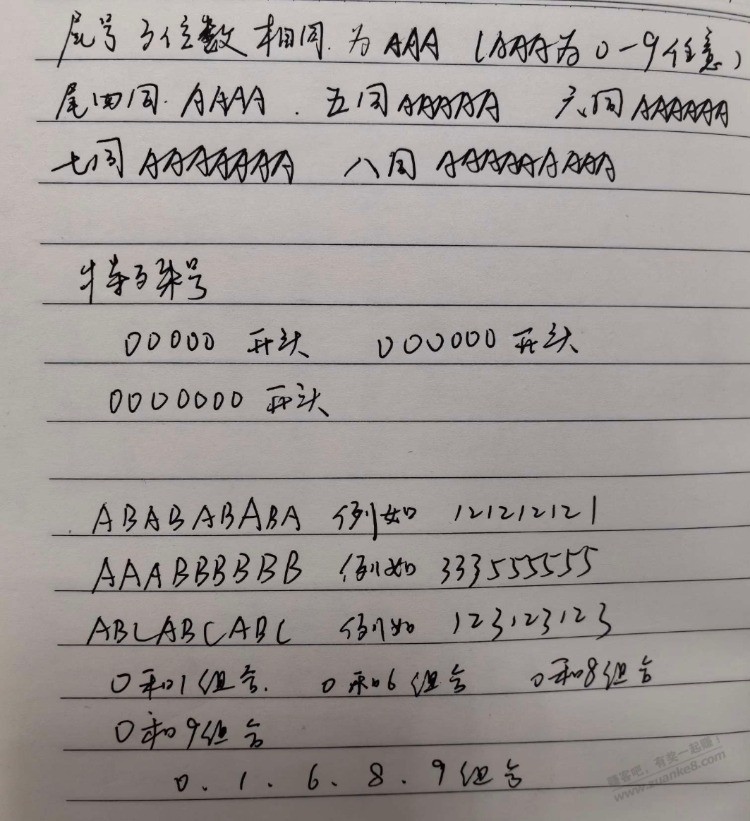 尾号3位数相同.为AAA (AAA为0-9任意)
尾四同.AAAA.五同AAAAA 六同AAAAAA
七同AAAAAAA 八同AAAAAAAA
号
00000开头 000000开头
0000000开头
ABABABABA 例如 121212121
AAABBBBBB 例如 333555555
ABCABCABC 例如 123123123
0和1组合. 0和6组合 0和8组合
0和9组合
0.1.6.8.9组合
赚客吧,有奖一起赚!
www.zuanke8.com